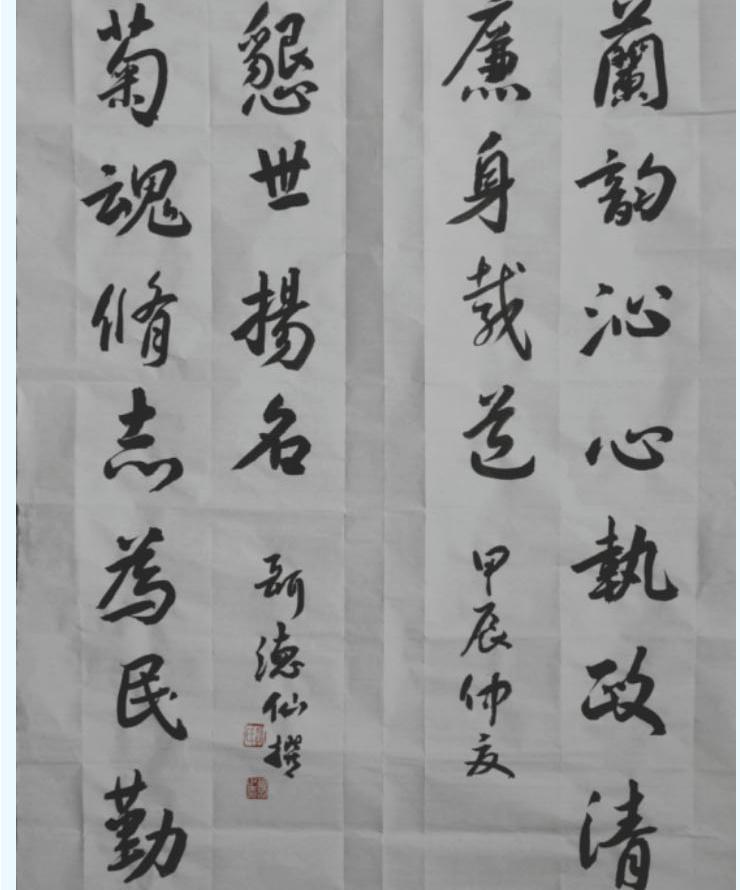 蘭韵沁心執政清
廉身載道
甲辰仲夏
菊魂脩志為民勤
懇世揚名
德仙撰